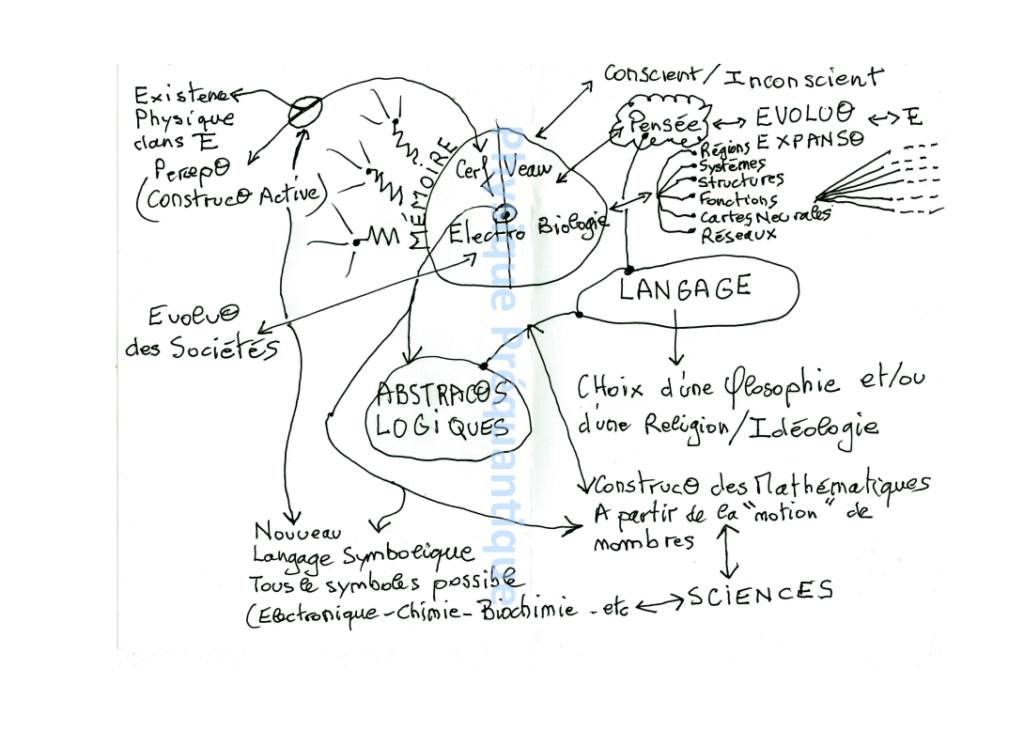 Existence
Physique
dans E
PercepΘ
(ConstrucΘ Active)
MÉMOIRE
Cer Veau
Electro Biologie
Conscient/Inconscient
Pensée
EVOLUΘ
E
EXPANSΘ
Régions
Systèmes
Structures
Fonctions
Cartes Neurales
Réseaux
LANGAGE
EvoluΘ
des Sociétés
ABSTRACΘS
LOGIQUES
CHoix d'une φlosophie et/ou
d'une Religion/Idéologie
ConstrucΘ des Mathématiques
A partir de la "motion" de
nombres
SCIENCES
Nouveau
Langage Symbolique
Tous le symboles possible
(Electronique-Chimie-Biochimie-etc
Physique Préquantique